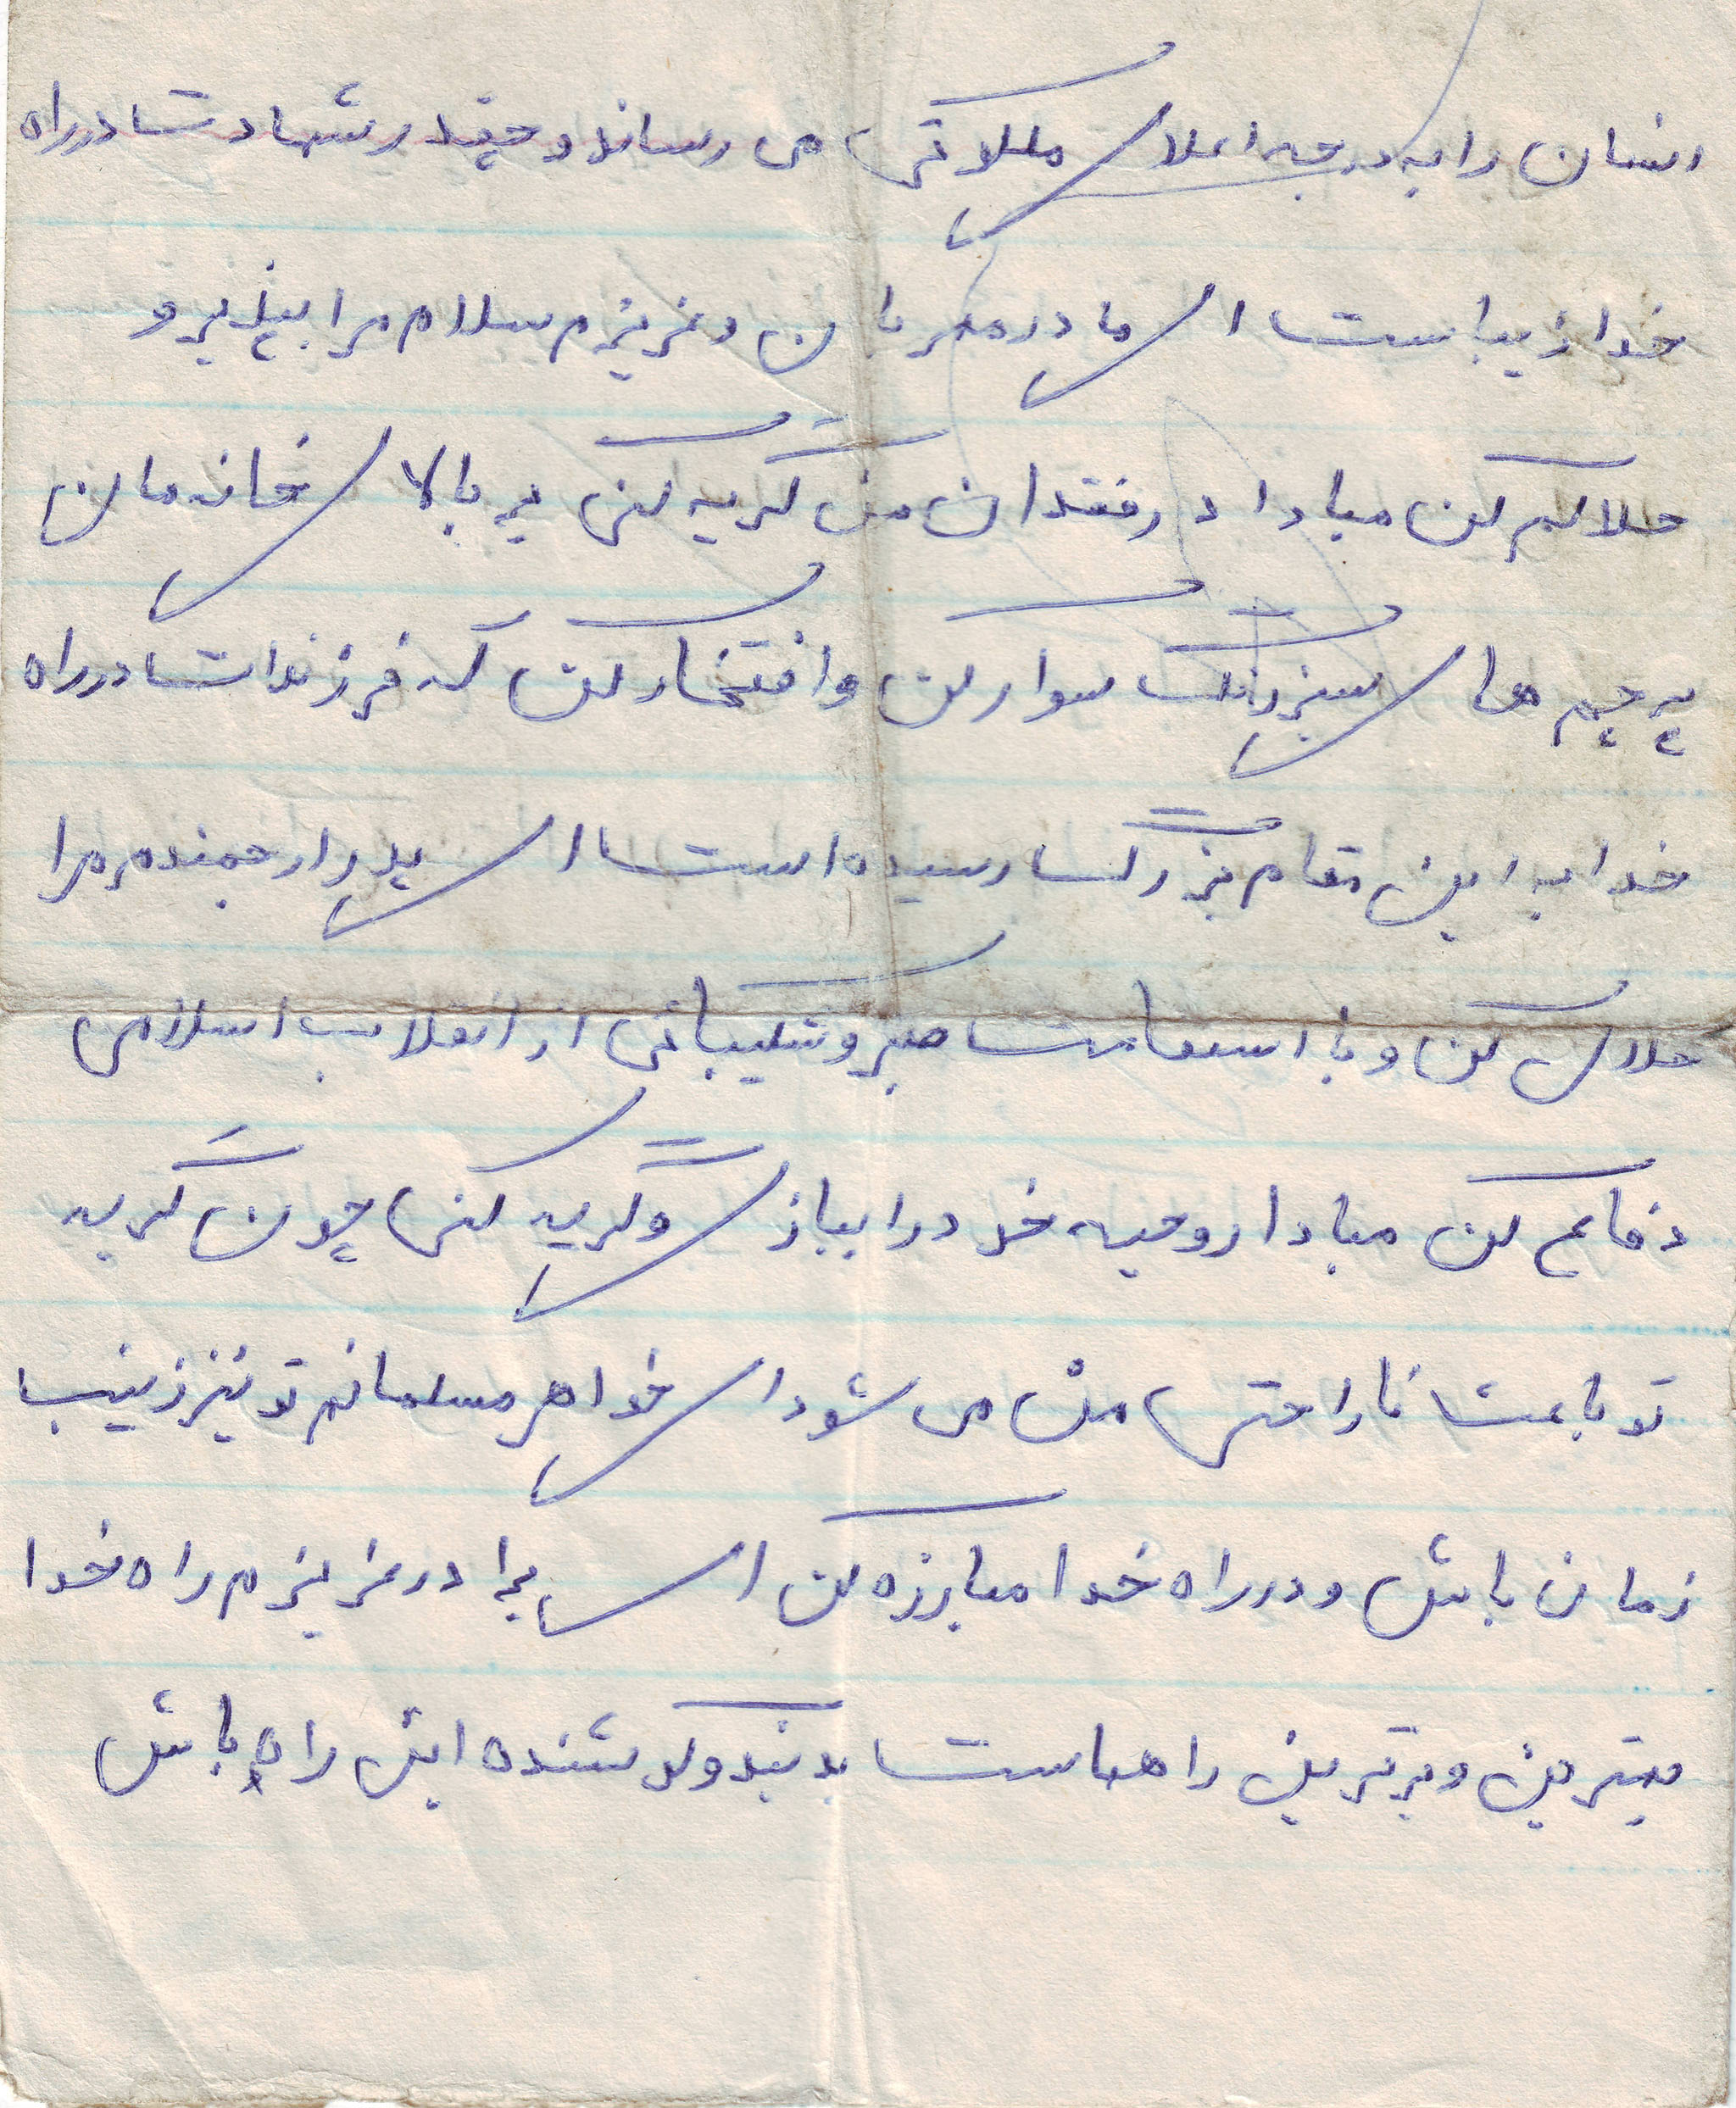 انسان را به درجه اعلای ملکوتی می رساند و چقدر شهادت در راه
خدا زیباست ای مادر مهربان و عزیزم سلام مرا بپذیر و
حلالم کن مبادا در فقدان من گریه کنی بر بالای خانه مان
پرچم های سبز رنگ سوار کن و افتخار کن که فرزندت در راه
خدا به این مقام بزرگ رسیده است ای پدر ارجمندم مرا
حلال کن و با استقامت صبر و شکیبائی از انقلاب اسلامی
دفاع کن مبادا روحیه خود را ببازی و گریه کنی چون گریه
تو باعث ناراحتی من می شود ای خواهر مسلمانم تو نیز زینب
زمان باش و در راه خدا مبارزه کن ای برادر عزیزم راه خدا
بهترین و برترین راههاست و کوشنده این راه باش